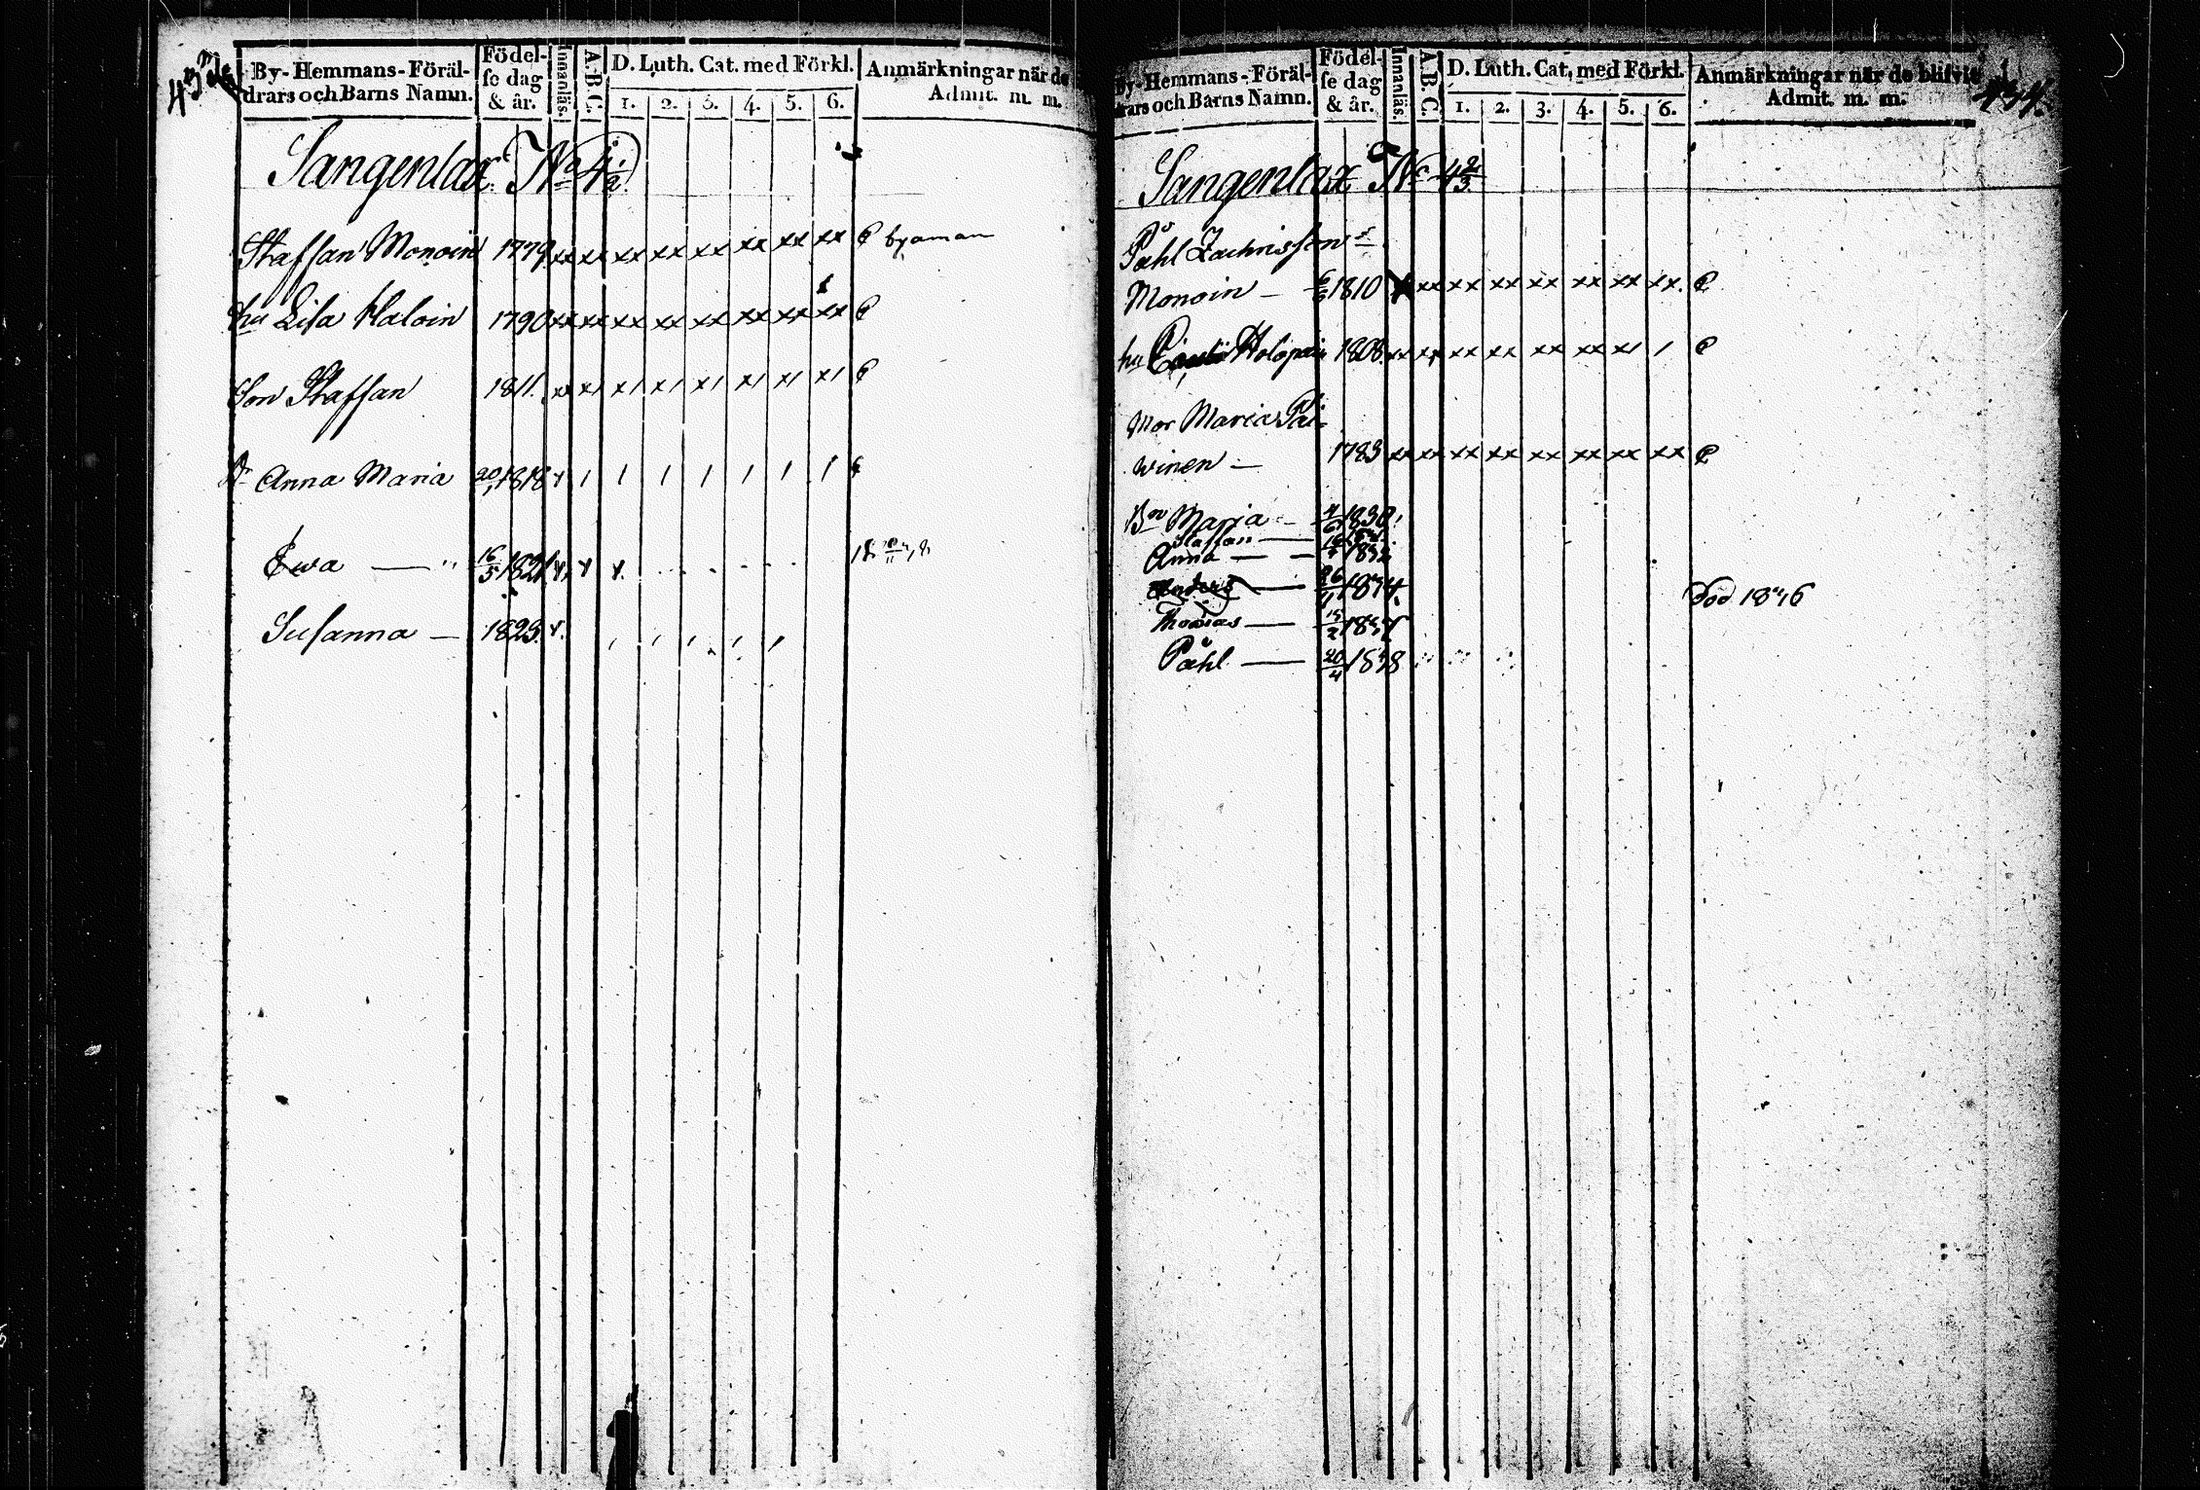 433
By-Hemmans-Föräl-
drars och Barns Namn.
Födel-
se dag
& år.
Innanläs.
A.B.C.
D. Luth. Cat. med Förkl.
1. 2. 3. 4. 5. 6.
Anmärkningar när de
Admit. m. m.
Sangenlax No 4 1/2
Staffan Monoin 1779 xx xx xx xx xx xx xx xx byaman
hu Lisa Haloin 1790 xx xx xx xx xx xx xx xx
Son Staffan 1811. xx x1 x1 x1 x1 x1 x1 x1
Dr Anna Maria 1818
Ewa — " 16/5 1821
Susanna — 1823
By-Hemmans-Föräl-
drars och Barns Namn.
Födel-
se dag
& år.
Innanläs.
A.B.C.
D. Luth. Cat. med Förkl.
1. 2. 3. 4. 5. 6.
Anmärkningar när de blifvit
Admit. m. m.
434.
Sangenlax No 4 2/3
Påhl Zachrisson
Monoin — 1810 xx xx xx xx xx xx xx
hu Holopain 1808. xx xx xx xx xx xx x1 1
Mor Maria Päi-
winen — 1783 xx xx xx xx xx xx xx xx
Bn Maria — 1830
Staffan —
Anna — —
Anders — 26/11 1834 död 1836
Thomas —
Påhl — 20/4 1838